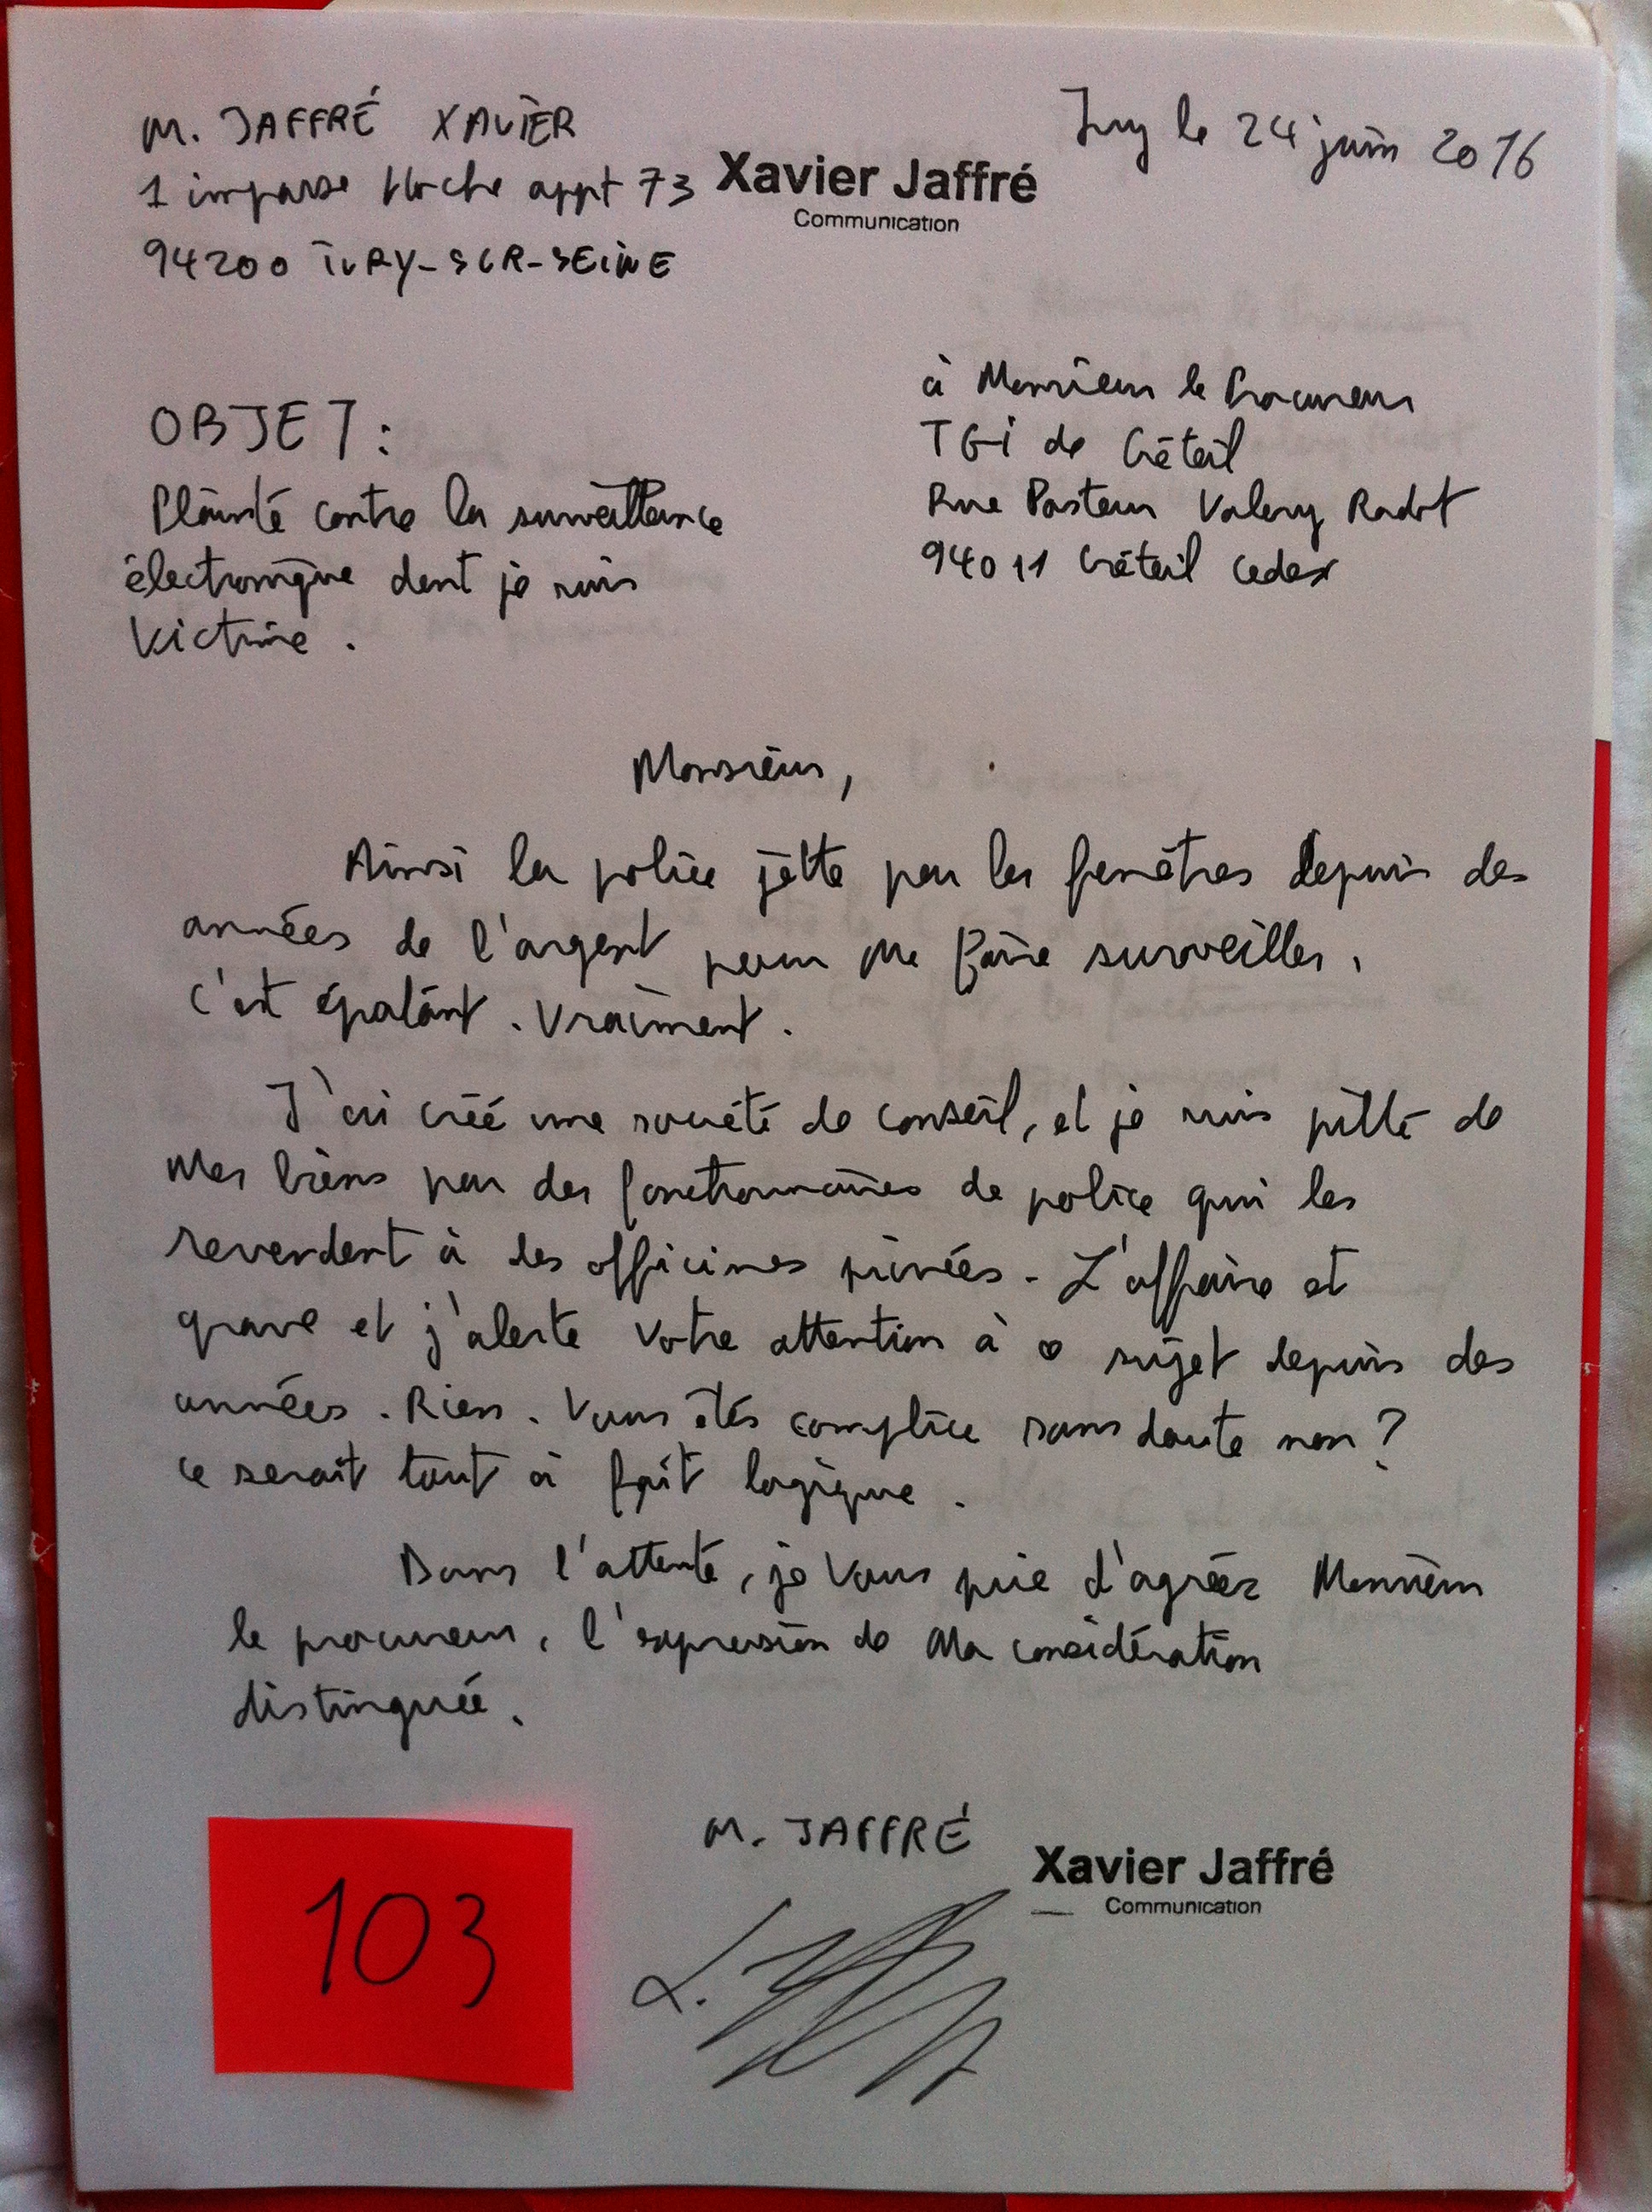 M. JAFFRÉ XAVIER
1 impasse Hoche appt 73
94200 IVRY-SUR-SEINE
Xavier Jaffré
Communication
Ivry le 24 juin 2016
à Monsieur le Procureur
TGI de Créteil
Rue Pasteur Valery Radot
94011 Créteil cedex
OBJET :
Plainte contre la surveillance
électronique dont je suis
victime.
Monsieur,
Ainsi la police jette par les fenêtres depuis des
années de l'argent pour me faire surveiller,
c'est épatant. Vraiment.
J'ai créé une société de conseil, et je suis pillé de
mes biens par des fonctionnaires de police qui les
revendent à des officines privées. L'affaire est
grave et j'alerte votre attention à ce sujet depuis des
années. Rien. Vous êtes complice sans doute non ?
ce serait tout à fait logique.
Dans l'attente, je vous prie d'agréer Monsieur
le procureur, l'expression de ma considération
distinguée.
M. JAFFRÉ
Xavier Jaffré
Communication
103